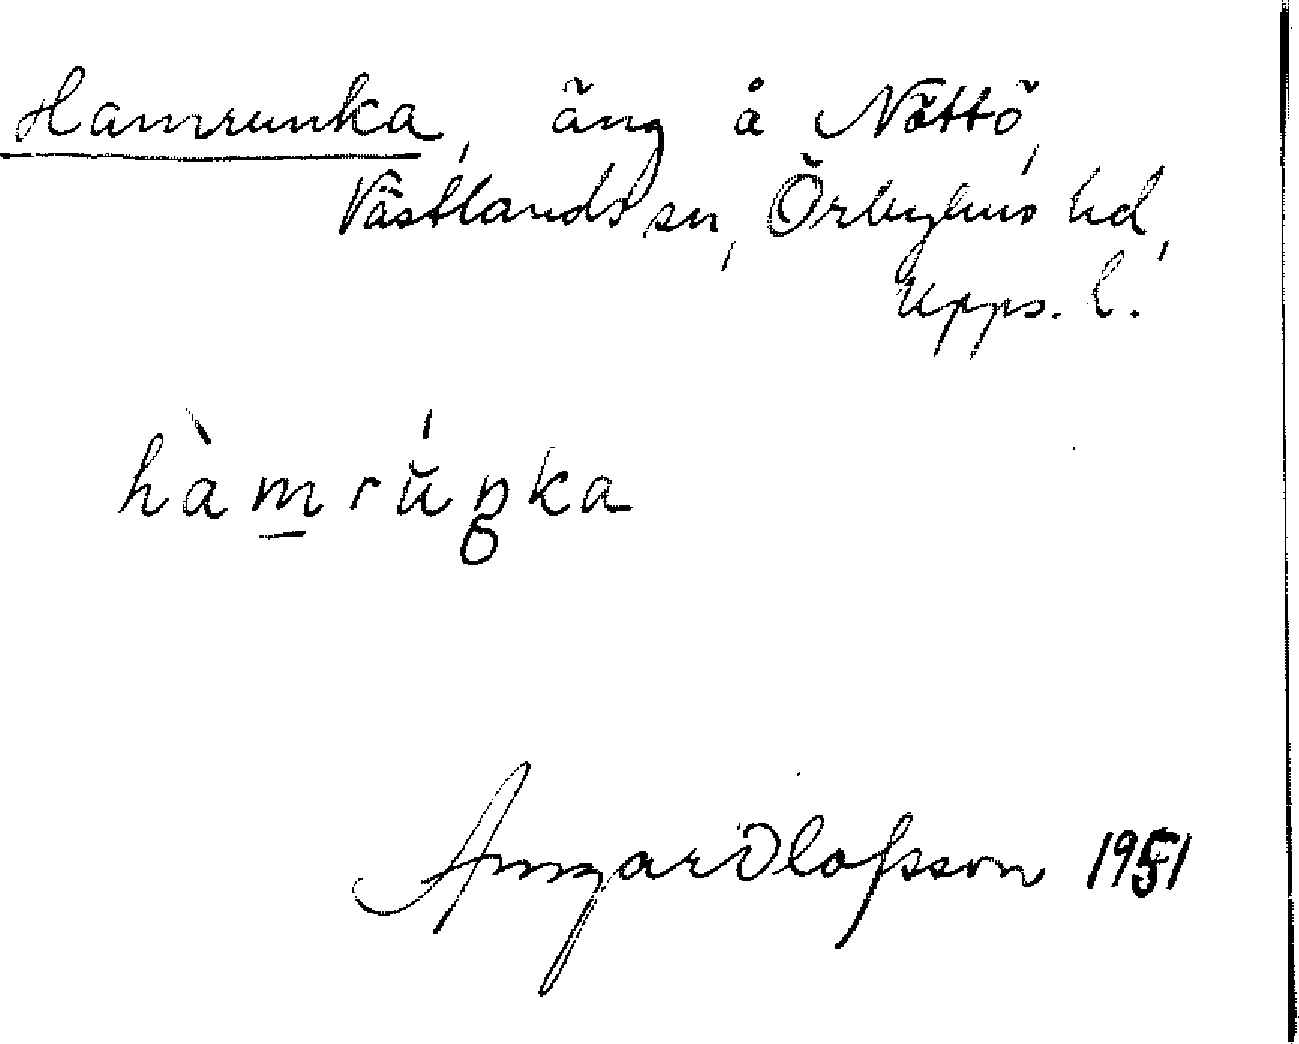 Hamrunka, äng å Nöttö,
Västlands sn, Örbyhus hd,
Upps. l.
hàm̱rúŋka
Ansgar Olofsson 1951